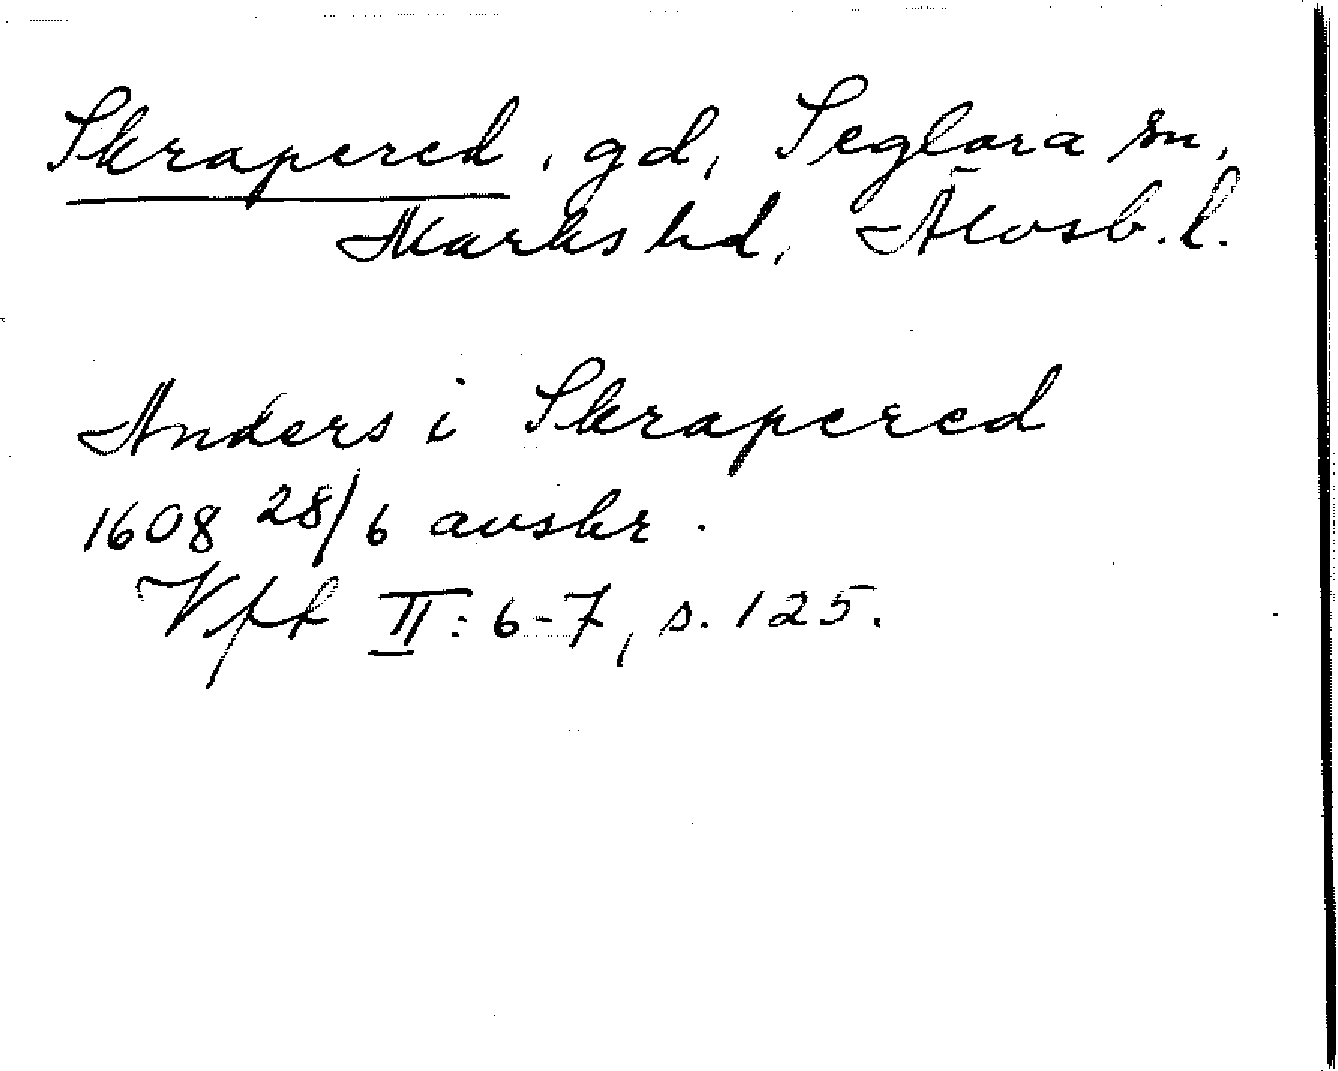 Skrapered, gd, Seglora sn,
Marks hd, Älvsb. l.
Anders i Skrapered
1608 28/6 avskr.
Vff II: 6-7, s. 125.